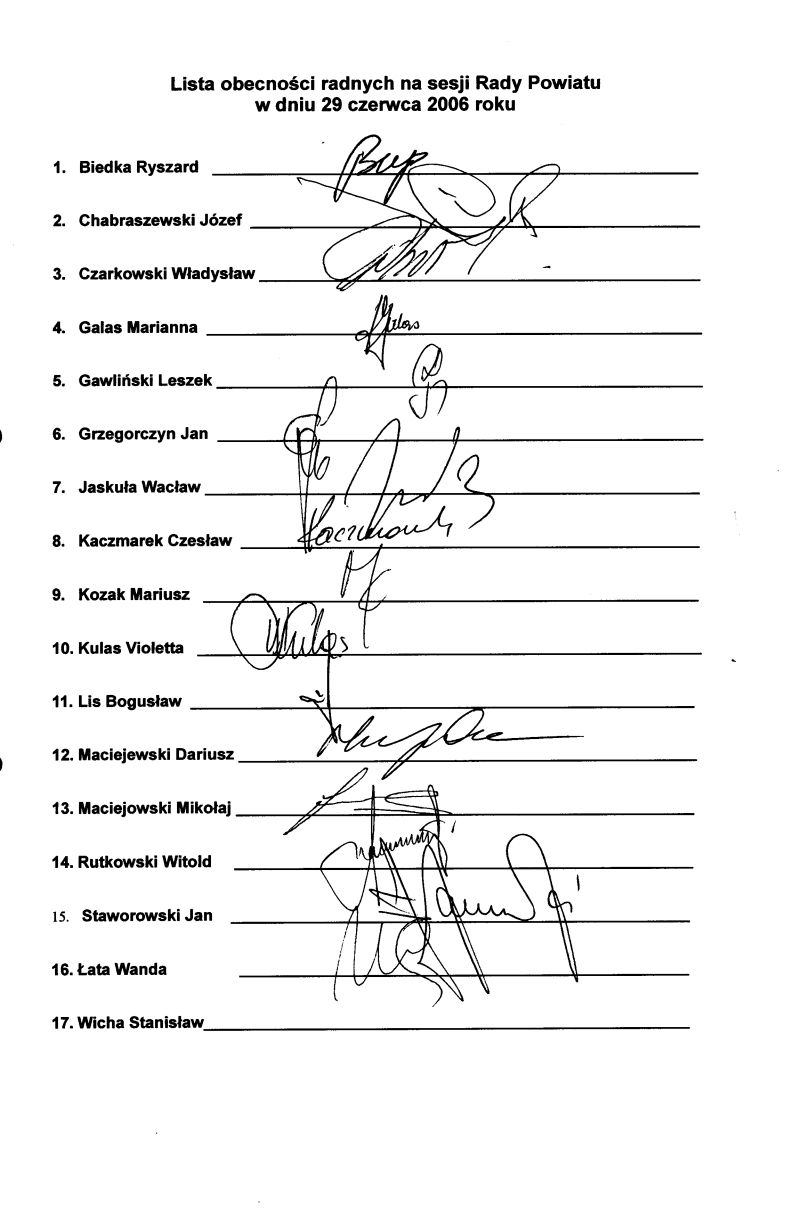 Lista obecności radnych na sesji Rady Powiatu
w dniu 29 czerwca 2006 roku
1. Biedka Ryszard
2. Chabraszewski Józef
3. Czarkowski Władysław
4. Galas Marianna
5. Gawliński Leszek
6. Grzegorczyn Jan
7. Jaskuła Wacław
8. Kaczmarek Czesław
9. Kozak Mariusz
10. Kulas Violetta
11. Lis Bogusław
12. Maciejewski Dariusz
13. Maciejowski Mikołaj
14. Rutkowski Witold
15. Staworowski Jan
16. Łata Wanda
17. Wicha Stanisław